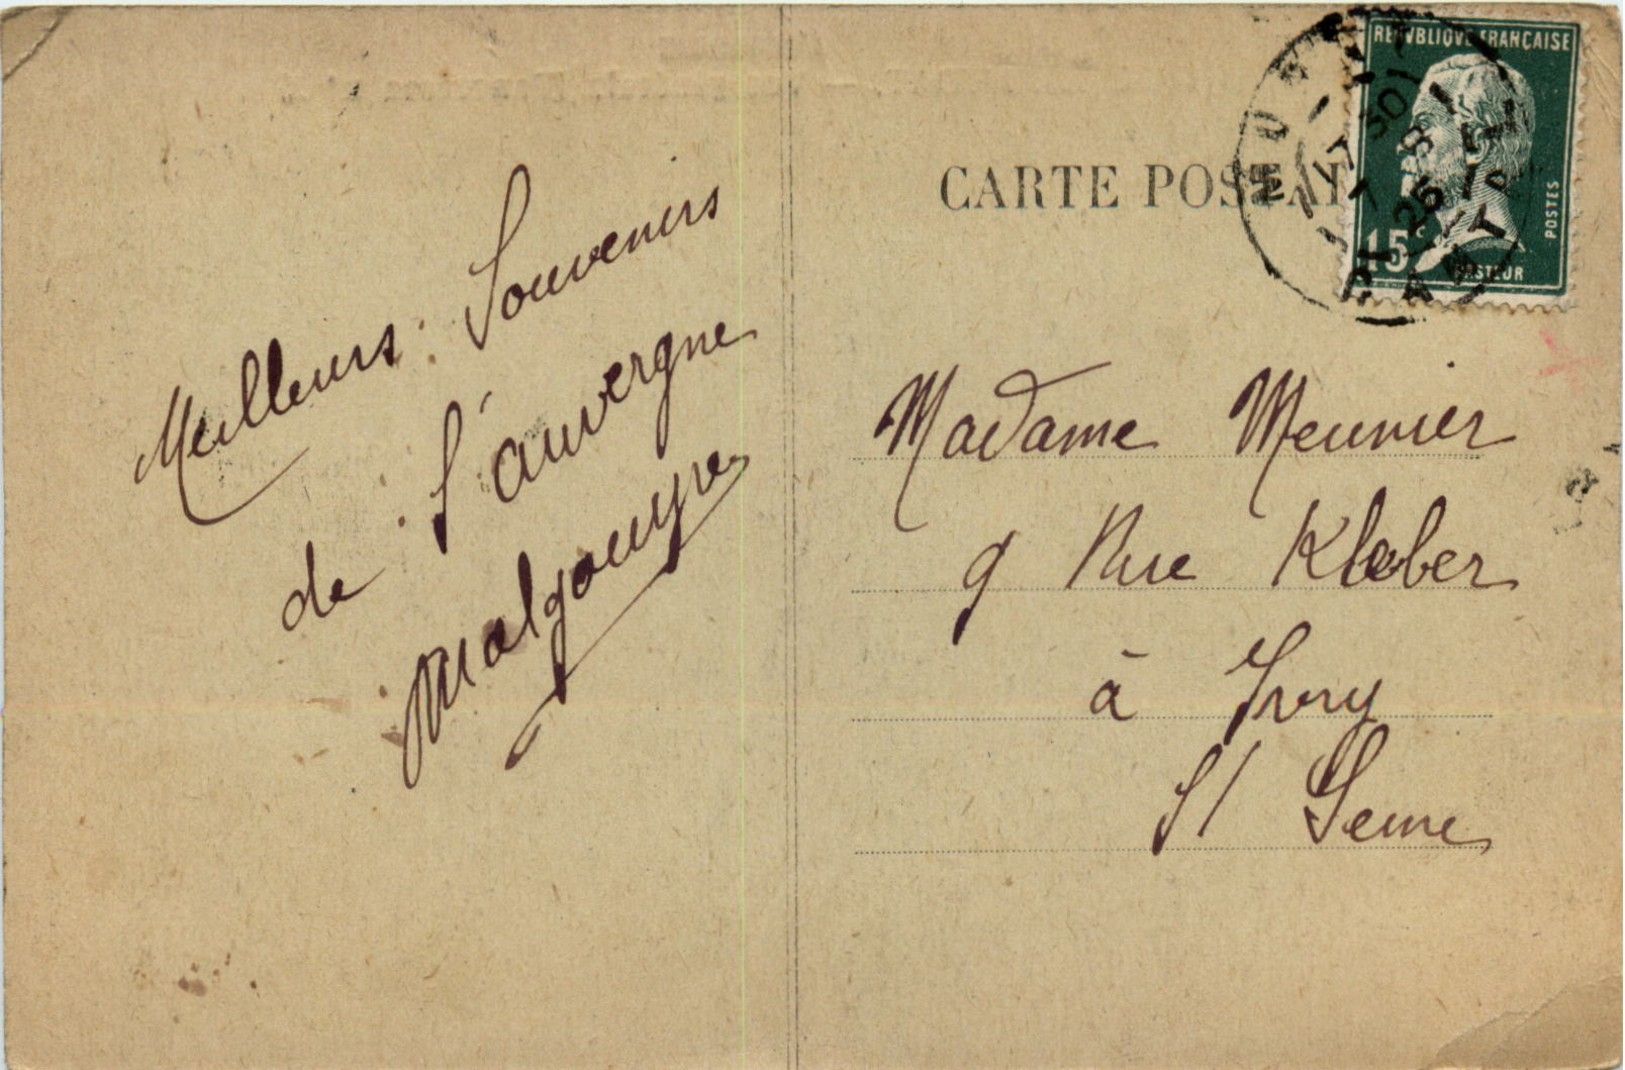 Meilleurs Souvenirs
de l'auvergne
Malgouyre
CARTE POSTAL
REPVBLIQVE FRANÇAISE
POSTES
15c
PASTEUR
MURAT
17 30
7 8
26
CANTAL
Madame Meunier
9 Rue Kleber
à Ivry
s/ Seine